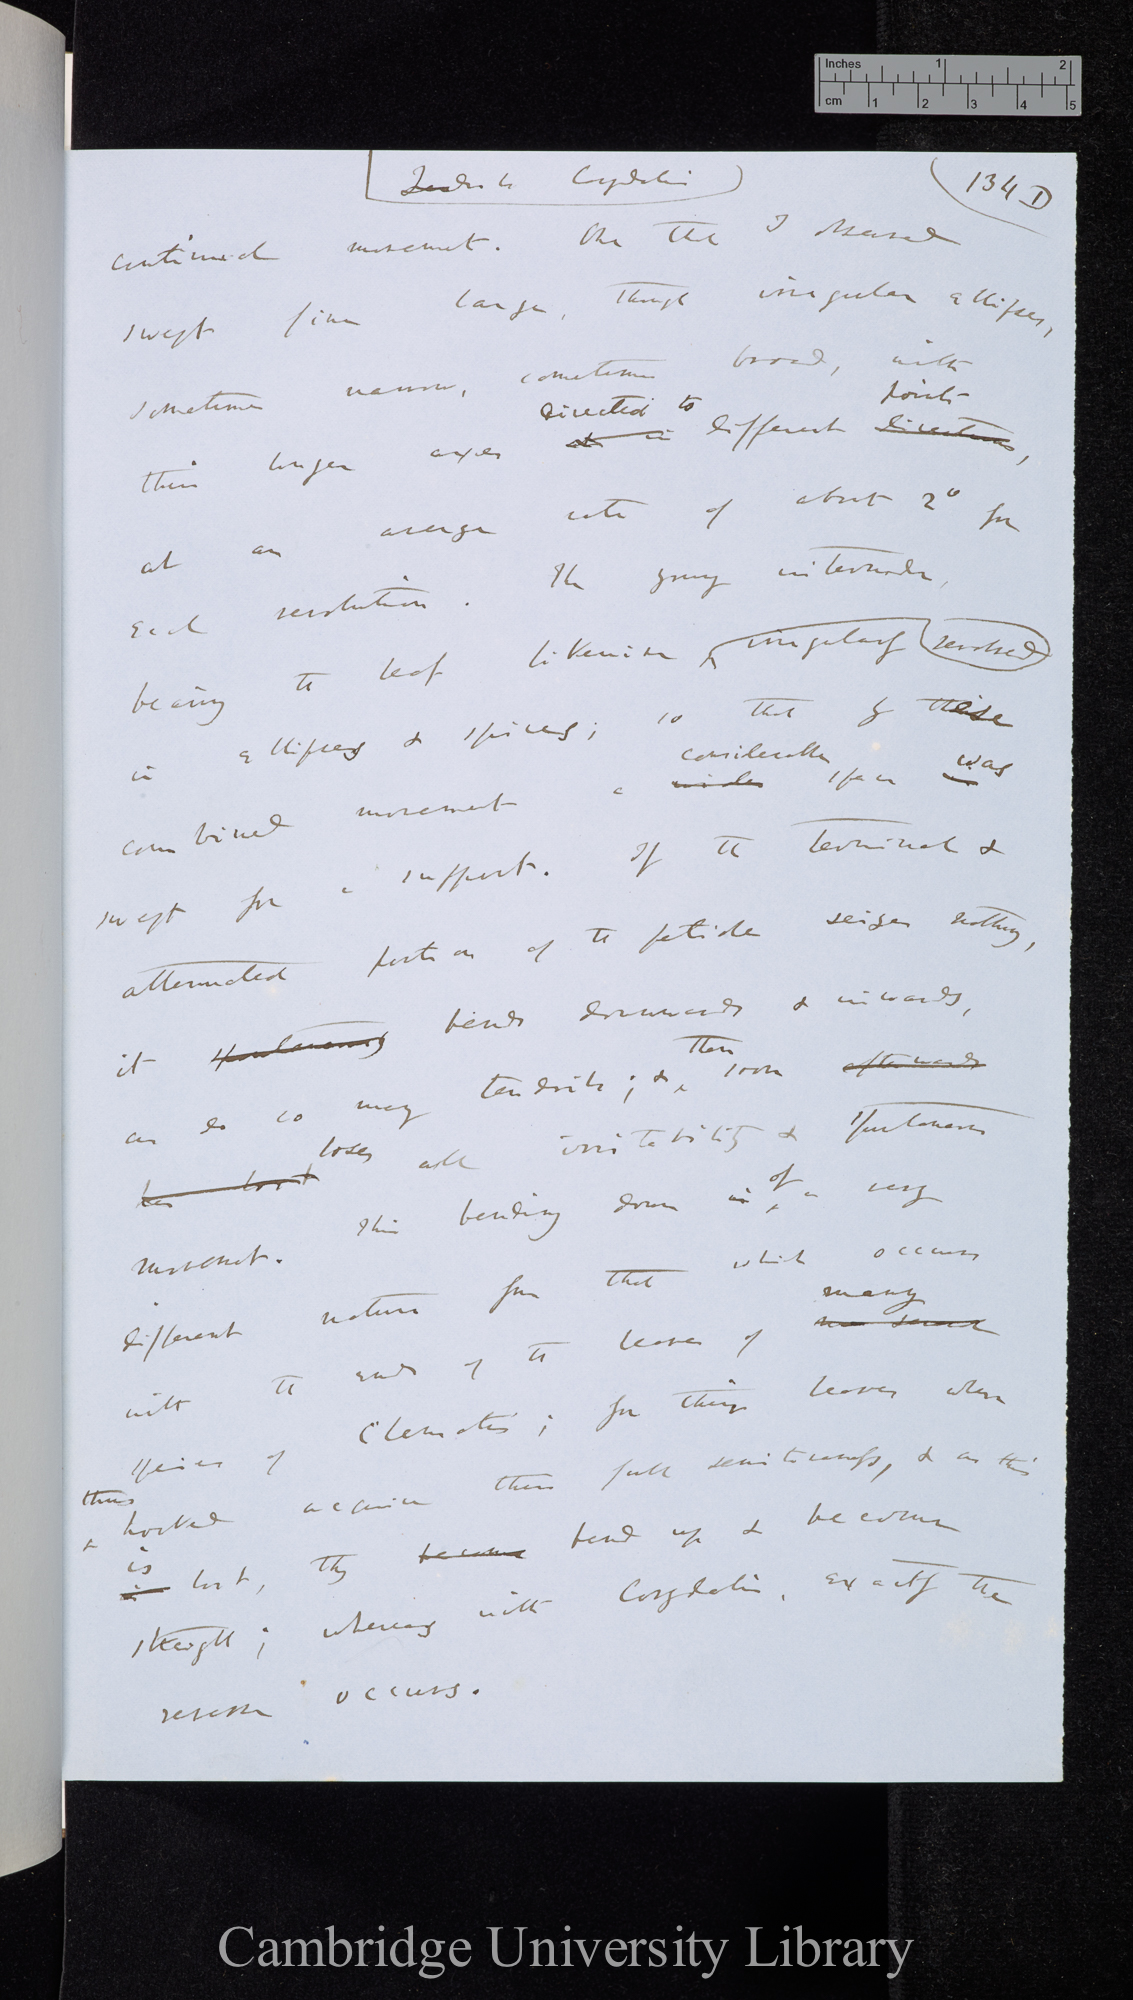 Inches 1 2
cm 1 2 3 4 5
Tendrils Corydalis
134 D
continued movement. One that I observed
swept four large, though irregular ellipses,
sometimes narrow, sometimes broad, with
directed to points
their longer axes in different directions,
at an average rate of about 2° for
each revolution. The young internodes,
bearing the leaf likewise irregularly revolved
in ellipses & spires; so that by these
considerable was
combined movement a wide space is
swept for a support. If the terminal &
attenuated portion of the petiole seizes nothing,
it spontaneously bends downwards & inwards,
then
as do so many tendrils; & soon afterwards
loses
has lost all irritability & spontaneous
of
movement. This bending down is a very
different nature from that which occurs
many
with the ends of the leaves of
species of Clematis; for their leaves when
thus
hooked acquire their full sensitiveness, & as this
is
is lost, they become bend up & become
straight; whereas with Corydalis, exactly the
reverse occurs.
Cambridge University Library